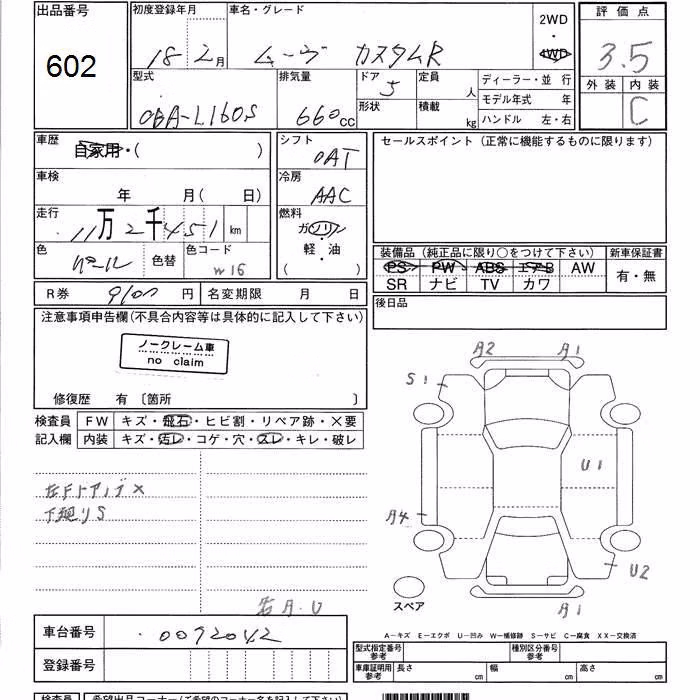 出品番号 初度登録年月 車名・グレード 2WD ・ 4WD 評価点
602 18 2月 ムーヴ カスタムR 3.5
外装 内装 C
型式 排気量 ドア 定員 人 ディーラー・並行
CBA-L160S 660cc 5 形状 積載 kg モデル年式 年
ハンドル 左・右
車歴 自家用・( ) シフト OAT セールスポイント(正常に機能するものに限ります)
車検 年 月( 日) 冷房 AAC
走行 11万2千451km 燃料 ガソリン
軽・油
( )
色 色替 色コード W16 装備品(純正品に限り○をつけて下さい) 新車保証書
PS PW ABS エアB AW 有・無
SR ナビ TV カワ
R券 円 名変期限 月 日 後日品
注意事項申告欄(不具合内容等は具体的に記入して下さい)
ノークレーム車
no claim
修復歴 有 〔箇所 〕
検査員 FW キズ・飛石・ヒビ割・リペア跡・×要
記入欄 内装 キズ・汚レ・コゲ・穴・スレ・キレ・破レ
A2 A1
S1
U1
A4
下廻りS
U2
スペア
A1
A-キズ E-エクボ U-凹み W-補修跡 S-サビ C-腐食 XX-交換済
車台番号 0092042
登録番号
型式指定番号 参考 種別区分番号 参考
車庫証明用 参考 長さ cm 幅 cm 高さ cm
検査員 希望出品コーナー(ご希望のコーナー名を記入して下さい)